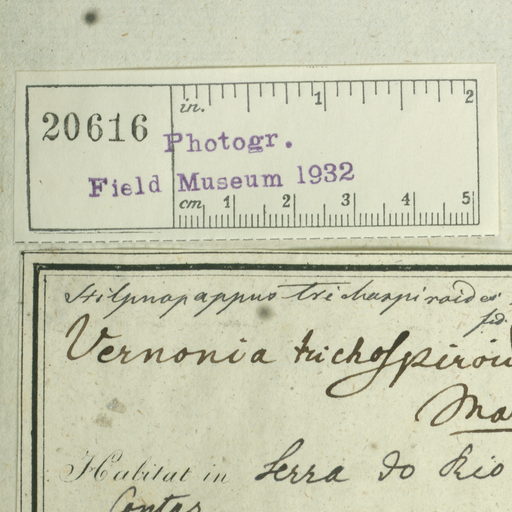 in. 1 2
20616
Photogr.
Field Museum 1932
cm 1 2 3 4 5
Stilpnopappus trichospiroides
Vernonia trichospiroid
Ma
Habitat in Serra do Rio
Contas